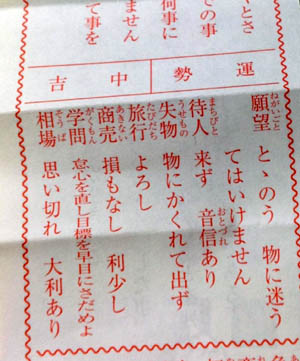 くとさ
での事
何事に
ません
て事を
運勢 中吉
願望 ねがいごと とゝのう 物に迷う
てはいけません
待人 まちびと 来ず 音信あり おとづれ
失物 うせもの 物にかくれて出ず
旅行 たびだち よろし
商売 あきない 損もなし 利少し
学問 がくもん 怠心を直し目標を早目にさだめよ
相場 そうば 思い切れ 大利あり